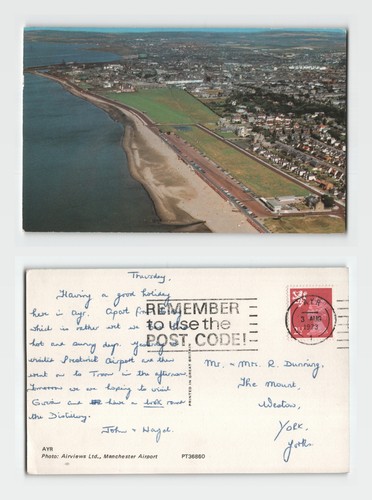 Thursday.
Having a good holiday
here in Ayr. Apart from
which is rather wet we
hot and sunny days. Yesterday we
visited Prestwick Airport and then
went on to Troon in the afternoon.
Tomorrow we are hoping to visit
Girvan and have a look round
the Distillery.
John &
REMEMBER
to use the
POST CODE!
AYR
1973
PRINTED IN GREAT BRITAIN
Mr. & Mrs. R. Dunning,
The Mount,
York,
Yorks.
AYR
Photo: Airviews Ltd., Manchester Airport
PT36660